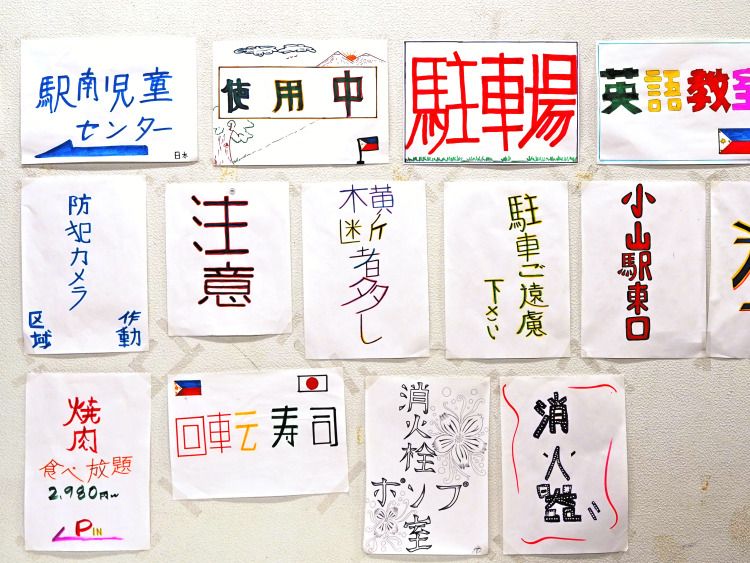 駅南児童
センター
日本
使用中
駐車場
英語教室
防犯カメラ
区域
作動
注意
横断者多し
駐車ご遠慮
下さい
小山駅東口
焼肉
食べ放題
2,980円~
P IN
回転寿司
消火栓
ポンプ
室
消火器